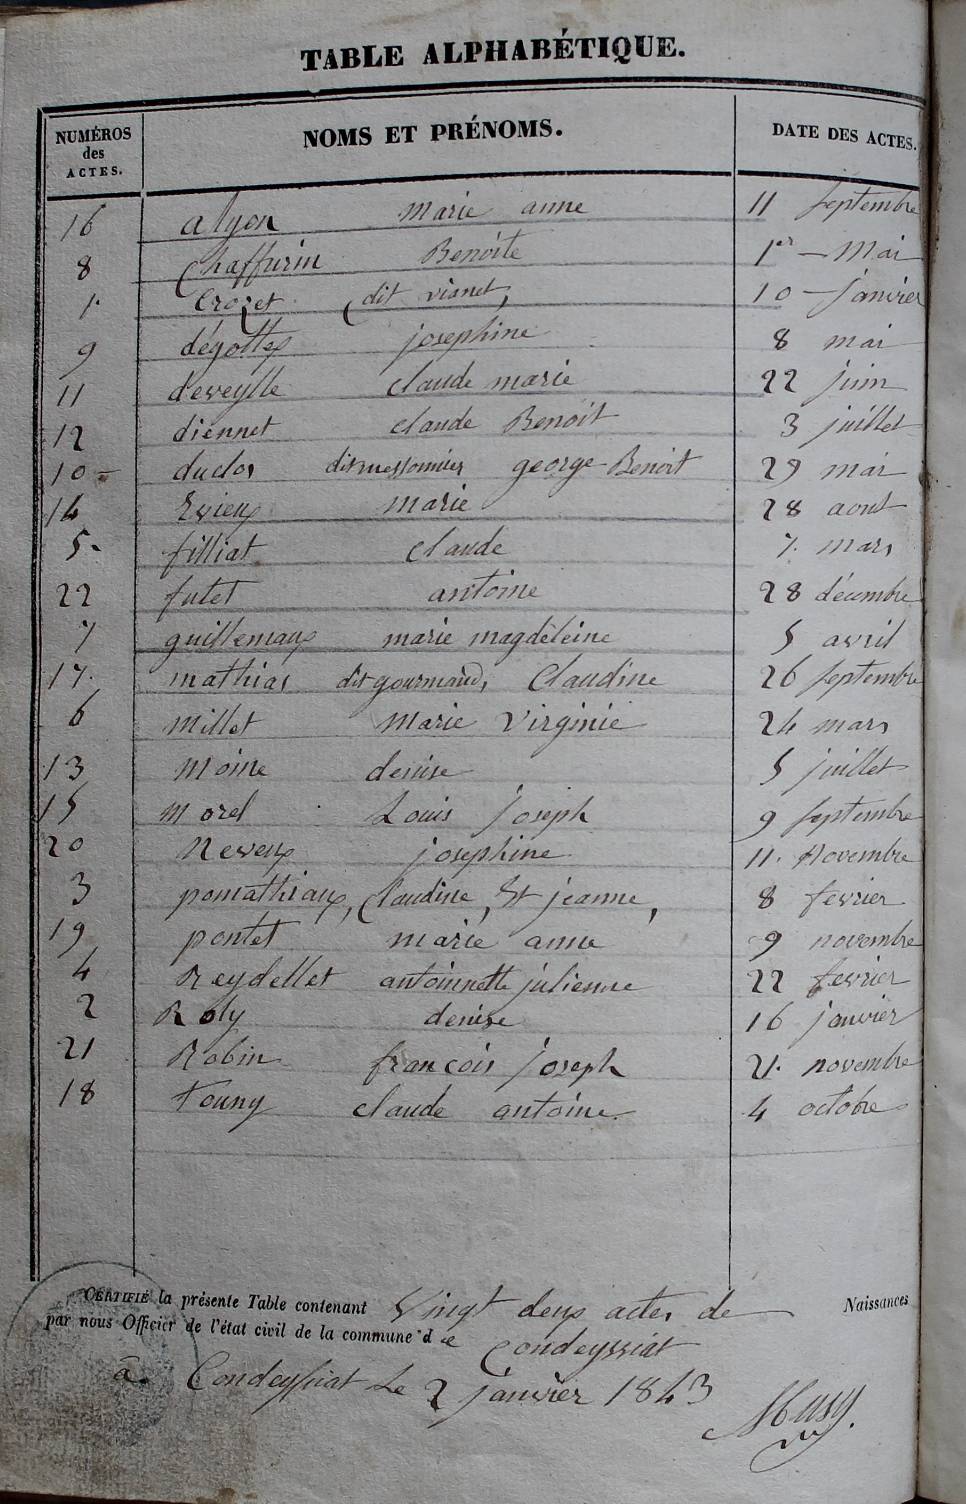 TABLE ALPHABÉTIQUE.
NUMÉROS des ACTES. NOMS ET PRÉNOMS. DATE DES ACTES.
16 alyon marie anne 11 septembre
8 Chaffurin Benoite 1er mai
1. Crozet dit vianet, 10 janvier
9 dégottex josephine 8 mai
11 deveylle claude marie 22 juin
12 diennet claude Benoit 3 juillet
10 duclos dit messonnier george Benoit 29 mai
14 Evieux marie 28 aout
5. filliat claude 7. mars
22 futet antoine 28 décembre
7 guillemaux marie magdeleine 5 avril
17. mathias dit gourmand, Claudine 26 septembre
6 Millet marie Virginie 24 mars
13 Moine denise 5 juillet
15 Morel Louis joseph 9 septembre
20 Neveux josephine 11. Novembre
3 pomathiaux, Claudine, St jeanne, 8 fevrier
19 pontet marie anne 9 novembre
4 Reydellet antoinnette julienne 22 fevrier
2 Roly denise 16 janvier
21 Robin francois joseph 21. novembre
18 Touny claude antoine 4 octobre
CERTIFIÉ la présente Table contenant Vingt deux actes de Naissances
par nous Officier de l'état civil de la commune de Condeyssiat
à Condeyssiat Le 2 janvier 1843
Musy.